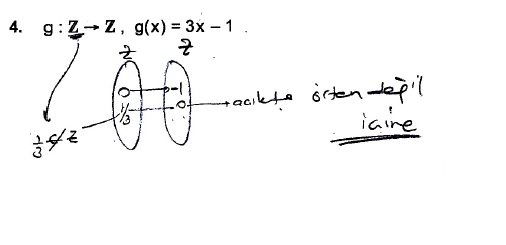 4. g : Z → Z, g(x) = 3x – 1
Z Z
0 -1
1/3 0 → açıkta örten değil
1/3 ∉ Z
içine